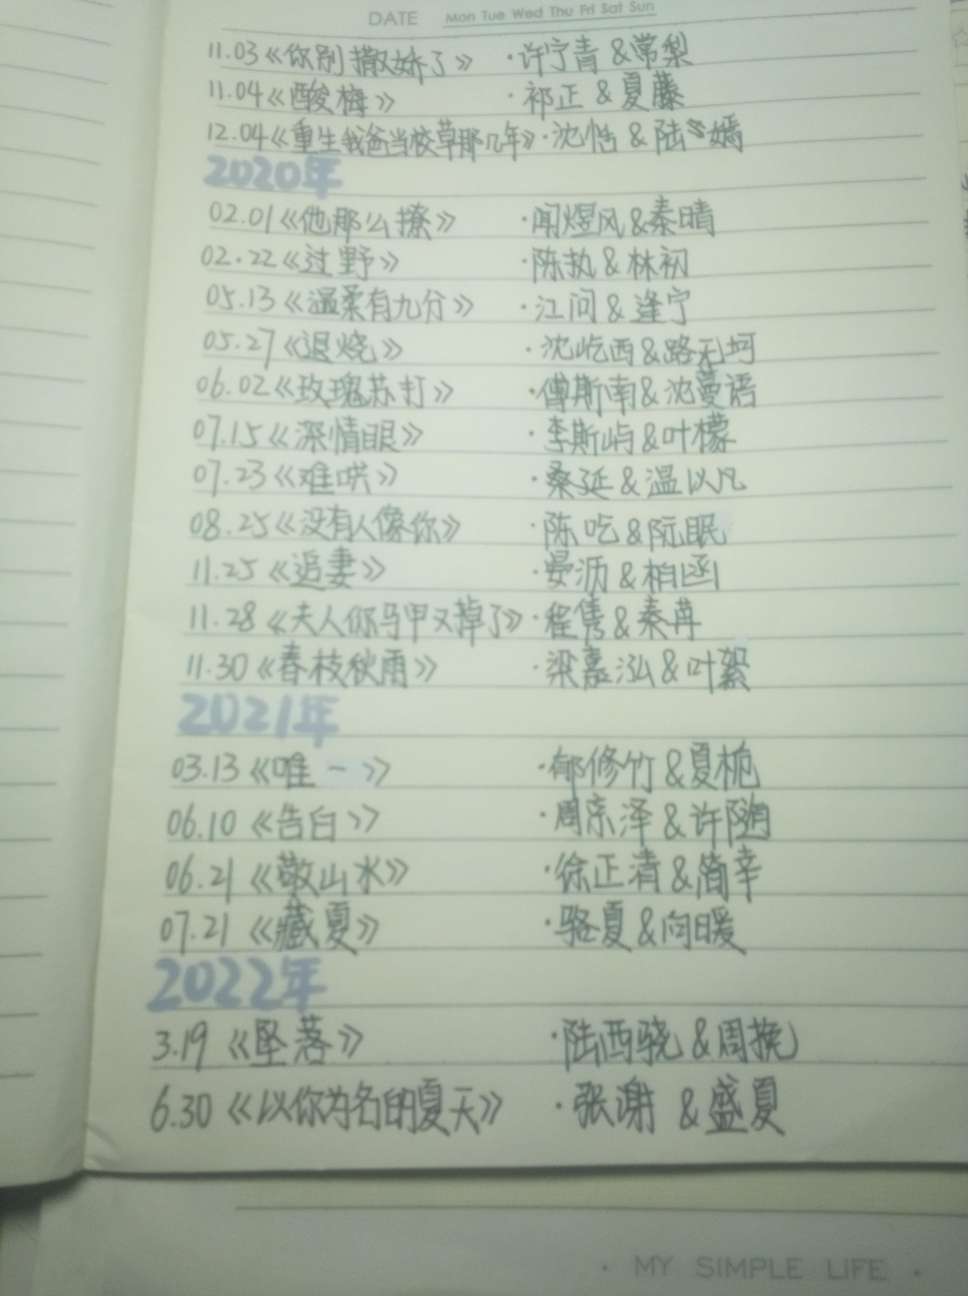 DATE Mon Tue Wed Thu Fri Sat Sun
11.03《你别撒娇了》 ·许宁青&常梨
11.04《酸梅》 ·祁正&夏藤
12.04《重生我爸当校草那几年》·沈恬&陆嫣
2020年
02.01《他那么撩》 ·闻煜风&秦晴
02.22《过野》 ·陈执&林初
05.13《温柔有九分》 ·江问&逢宁
05.27《退烧》 ·沈屹西&路无坷
06.02《玫瑰苏打》 ·傅斯南&沈蔓语
07.15《深情眼》 ·李斯屿&叶檬
07.23《难哄》 ·桑延&温以凡
08.25《没有人像你》 ·陈屹&阮眠
11.25《追妻》 ·晏沥&柏函
11.28《夫人你马甲又掉了》·程隽&秦苒
11.30《春枝秋雨》 ·梁嘉泓&叶絮
2021年
03.13《唯一》 ·郁修竹&夏桅
06.10《告白》 ·周京泽&许随
06.21《敬山水》 ·徐正清&简幸
07.21《藏夏》 ·骆夏&向暖
2022年
3.19《坠落》 ·陆西骁&周挽
6.30《以你为名的夏天》 ·张谢&盛夏
· MY SIMPLE LIFE ·